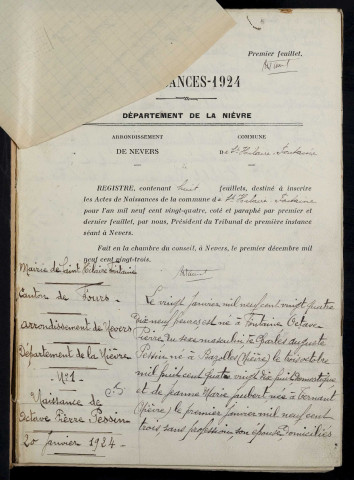 Premier feuillet.
NAISSANCES-1924
DÉPARTEMENT DE LA NIÈVRE
ARRONDISSEMENT
DE NEVERS
COMMUNE
De St Hilaire-Fontaine
REGISTRE, contenant huit feuillets, destiné à inscrire
les Actes de Naissances de la commune de St Hilaire Fontaine
pour l'an mil neuf cent vingt-quatre, coté et paraphé par premier et
dernier feuillet, par nous, Président du Tribunal de première instance
séant à Nevers.
Fait en la chambre du conseil, à Nevers, le premier décembre mil
neuf cent vingt-trois.
Mairie de Saint Hilaire Fontaine
Canton de Fours
arrondissement de Nevers
Département de la Nièvre
N° 1
Naissance de
Octave Pierre Pessin
20 janvier 1924
Le vingt Janvier mil neuf cent vingt quatre
dix neuf heures est né à Fontaine Octave
Pierre du sexe masculin de Charles auguste
Pessin né à (Nièvre) le trois octobre
mil huit cent quatre vingt dix huit Domestique
et de Jeanne Marie née à
(Nièvre) le premier janvier mil neuf cent
trois sans profession son épouse Domiciliés